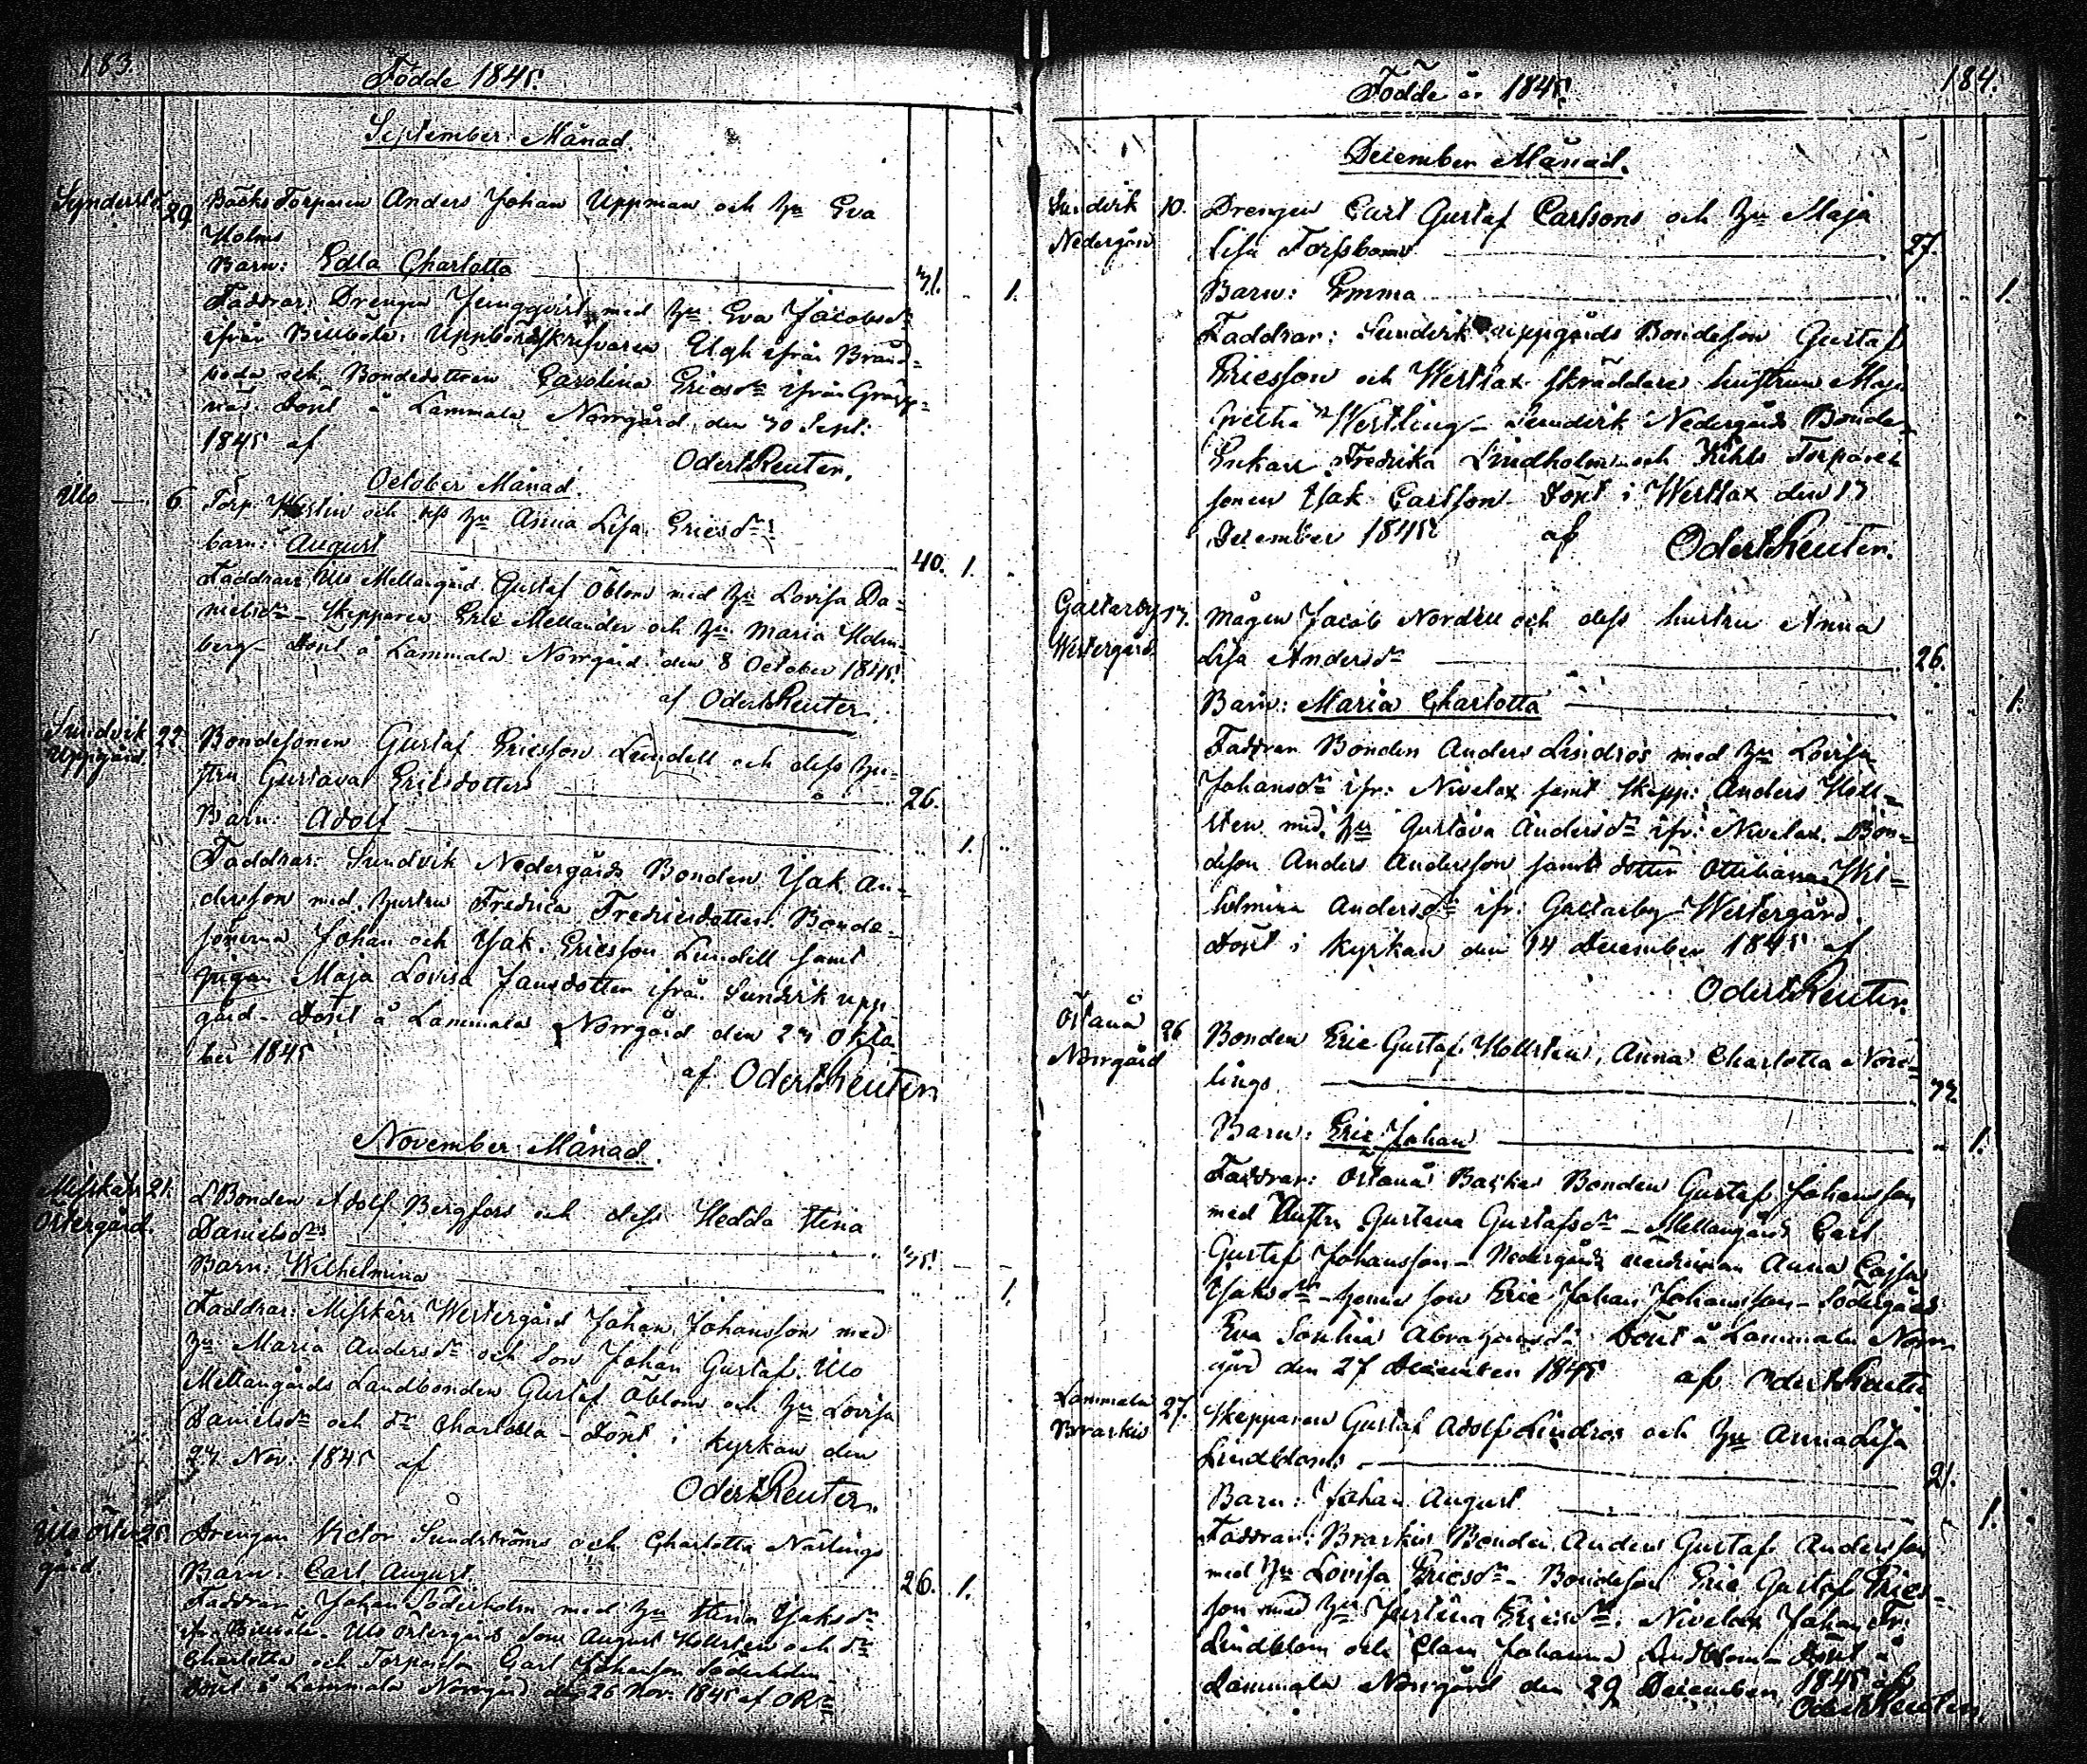 183.
Födde 1845.
September Månad.
29. Backstorparen Anders Johan Uppman och hu Eva
Holms
Barn: Edla Charlotta 31. 1.
Faddrar: Drengen med hu Eva Jacobsdr
ifrån Billböle. Uppbördsskrifvaren Elgh ifrån
och Bondedottren Carolina Ericsdr ifrån
Döpt å Lammala Norrgård den 30 Sept:
1845 af
Odert Reuter.
October Månad.
Ulo 6. Torp. Westlin och hu Anna Lisa Ericsdr
barn: August 40. 1.
Faddrar: Ulo Mellangård Gustaf Öblom med hu Lovisa Da=
nielsdr - Skepparen Eric Mellander och hu Maria Holm=
berg - Döpt å Lammala Norrgård den 8 October 1845.
af Odert Reuter.
Sundvik 22. Bondesonen Gustaf Ericsson Lundell och dess hu=
Uppgård. stru Gustava Ericsdotter 26.
Barn: Adolf 1.
Faddrar: Sundvik Nedergårds Bonden Isak An=
dersson med hustru Fredrica Fredricsdotter. Bonde=
sönerna Johan och Isak Ericsson Lundell samt
pigan Maja Lovisa Jansdotter ifrån Sundvik upp
gård - Döpt å Lammala Norrgård den 23 Octo
ber 1845
af Odert Reuter
November Månad.
Misskärr 21. Bonden Adolf Bergfors och dess Hedda Stina
Östergård. Danielsdr 35.
Barn: Wilhelmina 1.
Faddrar: Misskärr Westergård Johan Johansson med
hu Maria Andersdr och son Johan Gustaf. Ulo
Mellangårds Landbonden Gustaf Öblom och hu Lovisa
Danielsdr och dr Charlotta - Döpt i kyrkan den
23 Nov: 1845 af
Odert Reuter.
Ulo Öster 25. Drengen Victor Sundströms och Charlotta Närlings
gård. Barn: Carl August 26. 1.
Faddrar: Johan Söderholm med hu Stina Isaksdr
ifr. Billböle. Ulo Östergårds son August Hollsten och dr
Charlotta och Torparson Carl Johanson Söderholm
Döpt å Lammala Norrgård den 26 Nov. 1845 af ORr
184.
Födde år 1845.
December Månad.
Sundvik 10. Drengen Carl Gustaf Carlsons och hu Maja
Nedergård Lisa Forsbom 27.
Barn: Emma 1.
Faddrar: Sundvik uppgårds Bondeson Gustaf
Ericsson och Westlax skräddare hustrun Maja
Gretha Westling - Sundvik Nedergårds Bonde
Enkan Fredrika Lindholm och Torpare
sonen Isak Carlsson - Döpt i Westlax den 13
December 1845 af Odert Reuter.
Galtarby 13. Mågen Jacob Nordell och dess hustru Anna
Westergård. Lisa Andersdr 26.
Barn: Maria Charlotta 1.
Faddrar Bonden Anders Lindros med hu Lovisa
Johansdr ifr: Nivelax samt Skepp: Anders Holl=
sten med hu Gustava Andersdr ifr: Nivelax. Bon=
deson Anders Andersson samt dotter Ottiliana Wil=
helmina Andersdr ifr: Galtarby Westergård.
Döpt i kyrkan den 14 December 1845 af
Odert Reuter.
Östanå 26 Bonden Eric Gustaf Hollsten, Anna Charlotta Nord=
Norrgård lings
Barn: Eric Johan 1.
Faddrar: Östanå Backas Bonden Gustaf Johansson
med Hustru Gustava Gustafsdr - Mellangårds Carl
Gustaf Johansson - Nedergårds Anna Cajsa
Isaksdr - hennes son Eric Johan Johansson - Södergårds
Eva Sophia Abrahamsdr Döpt å Lammala Norr
gård den 27 December 1845 af Odert Reuter
Lammala 27. Skepparen Gustaf Adolf Lindros och hu Anna Lisa
Braskis Lindbloms 21.
Barn: Johan August 1.
Faddrar: Braskis Bonden Anders Gustaf Andersson
med hu Lovisa Ericsdr - Bondeson Eric Gustaf Erics
son med hu Justina Ericsdr. Nivelax Johan Fr:
Lindblom och Clara Johanna Lindblom - Döpt å
Lammala Norrgård den 29 December 1845 af
Odert Reuter.